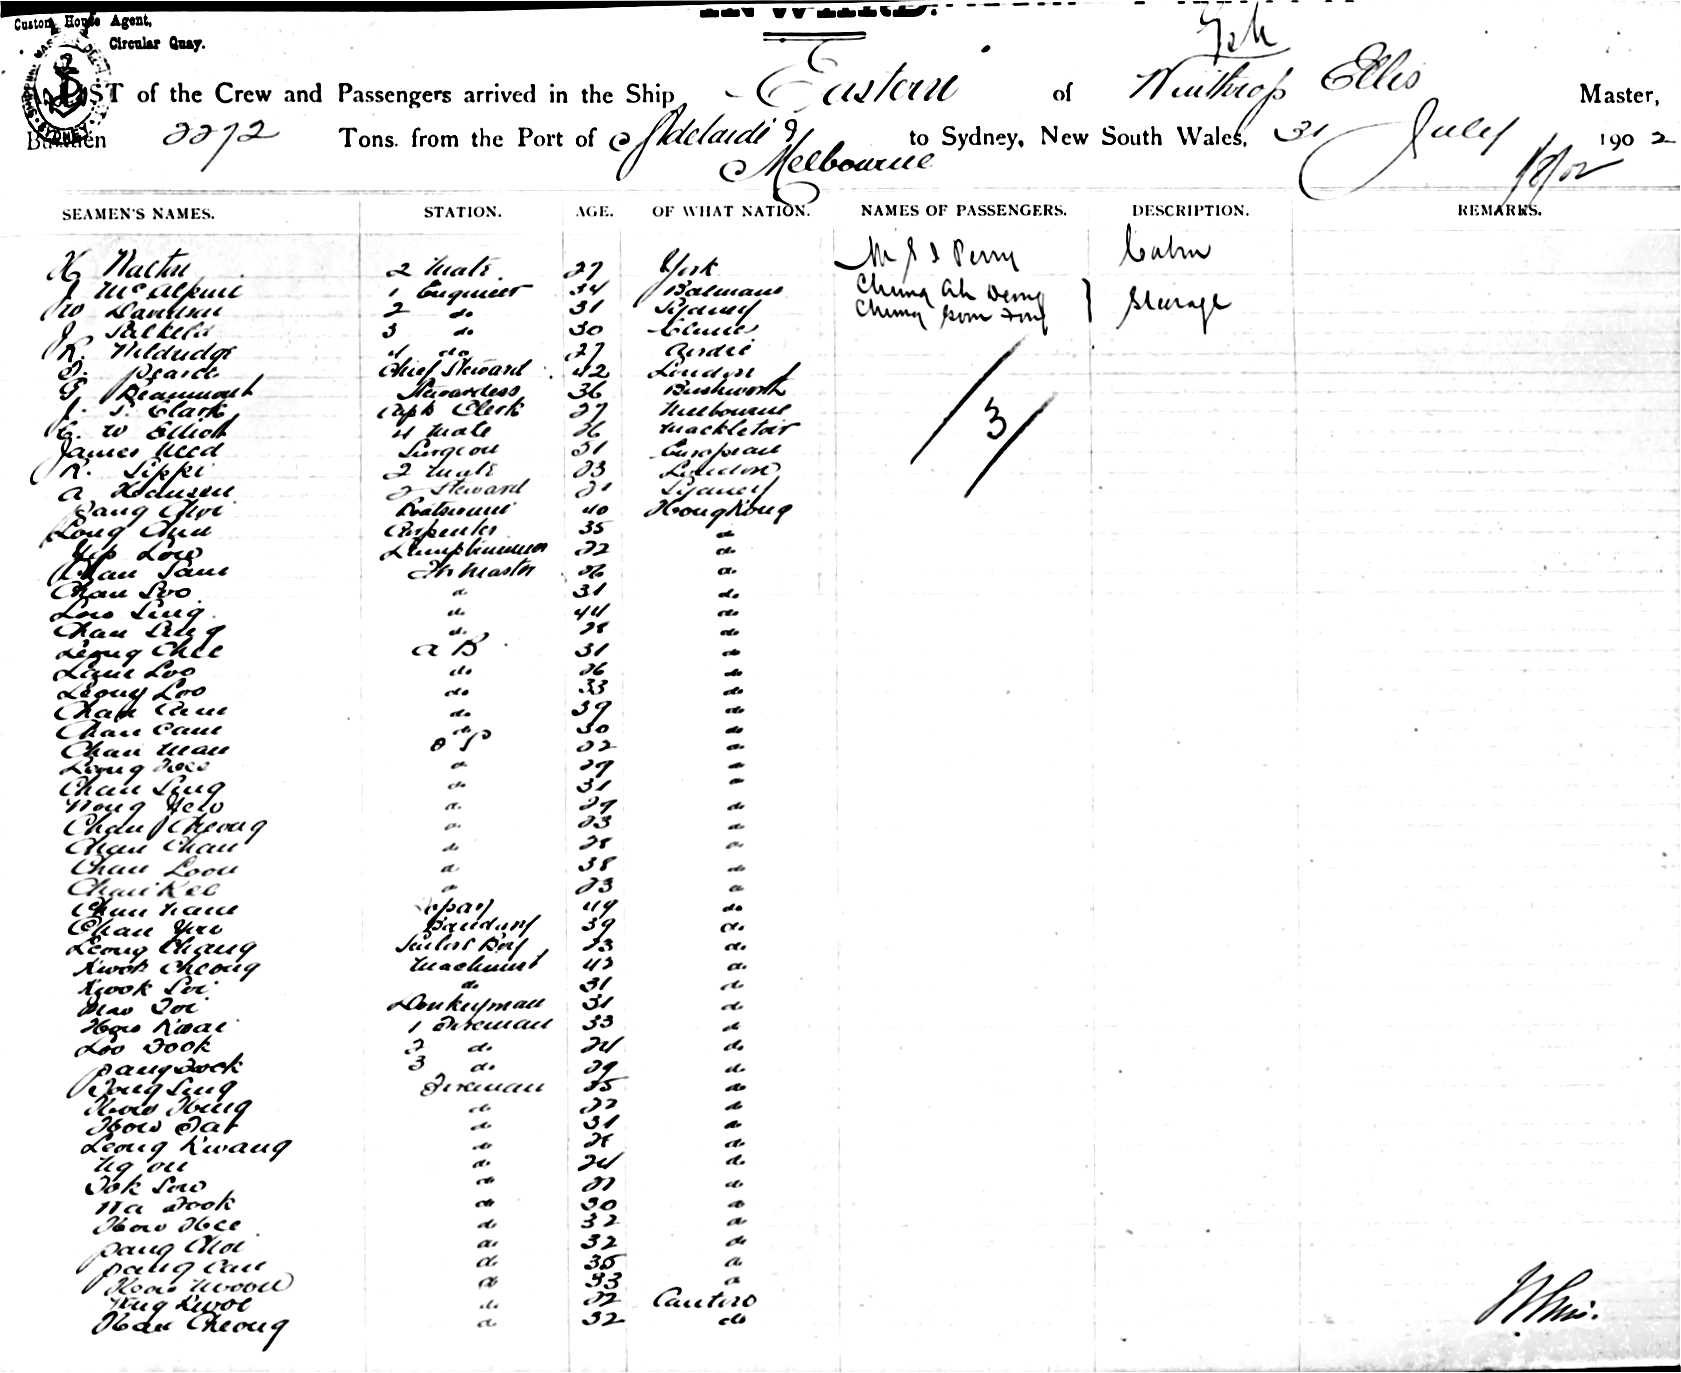 Custom House Agent,
Circular Quay.
INWARD.
LIST of the Crew and Passengers arrived in the Ship Eastern of Winthrop Ellis Master,
Burthen 2272 Tons. from the Port of Adelaide & to Sydney, New South Wales, 31 July 1902
Melbourne
1/8/02
SEAMEN'S NAMES. STATION. AGE. OF WHAT NATION. NAMES OF PASSENGERS. DESCRIPTION. REMARKS.
2 Mate 27 York Perry Cabin
J McAlpine 1 Engineer 34 Balmain Chung Ah
W Davidson 2 do 31 Sydney Chung Steerage
J Salkeld 3 do 30 
R. 4 do 27 Airdrie
Pearce Chief Steward 42 London
Beaumont Stewardess 36
J. S. Clark Capts Clerk 27 Melbourne 3
C. W Elliott 4 Mate 26
James Weed Surgeon 31 European
R. Sippe 2 Mate 23 London
A Hansen 2 Steward 21 Sydney
Pang Choi Boatswain 40 Hong Kong
Long Chun Carpenter 35 do
Yip Low Lamptrimmer 22 do
Chan Sam Qr Master 26 do
Chan Soo do 31 do
Low Sing do 44 do
Chan Sing do 28 do
Leong Chee A B 31 do
Lam Loo do 26 do
Leong Loo do 33 do
Chan Cam do 39 do
Chan Cam do 30 do
Chan Man O S 22 do
Leong do 27 do
Chan Sing do 31 do
Wong Yew do 29 do
Chan Cheong do 23 do
Chan Chan do 28 do
Chan Loon do 38 do
Chan Kee do 23 do
Chan 49 do
Chan You 39 do
Leong Chang Sailors Boy 23 do
Kwok Cheong Machinist 42 do
Kwok Soi do 31 do
Donkeyman 31 do
How Kwai 1 Fireman 33 do
Loo Fook 2 do 24 do
Pang Fook 3 do 29 do
Fong Sing Fireman 25 do
How Hing do 22 do
How Fat do 31 do
Leong Kwang do 28 do
Ng On do 24 do
Fok Sow do 27 do
Na Fook do 30 do
How Hee do 32 do
Pang Choi do 32 do
Pang Can do 35 do
How do 33 do
do 22 Canton
Han Cheong do 32 do